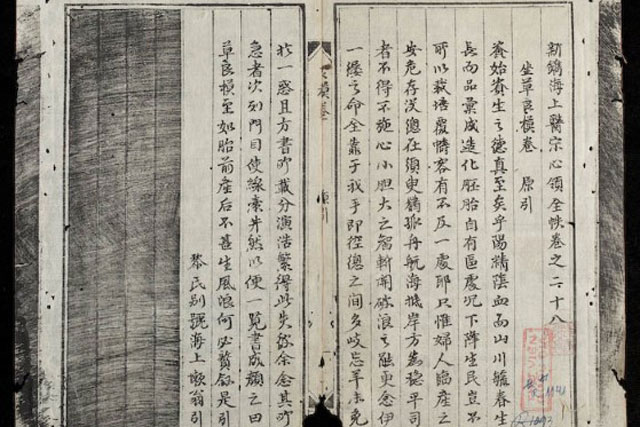 新鐫海上醫宗心領全帙卷之二十八
坐草良模卷 原引
資始資生之德真至矣乎陽精陰血而山川毓春生
長而品彙成造化胚胎自有區處况下降生民豈不
所以栽培覆幬容有不及一處耶只惟婦人臨產之
安危存没總在須臾猶孤舟航海 岸方為穩平司
者不得不施心小胆大之智斬關破浪之能更念伊
一縷之命全靠于我手即徑總之間多岐忘羊未免
模卷 引
於一惑且方書所載分演浩繁得此失彼余愈其所
急者次列門目使線索井然以便一覽書成顏之曰
草良模至如胎前產后不甚生風浪何必贅錄是引
黎氏别號海上懶翁引